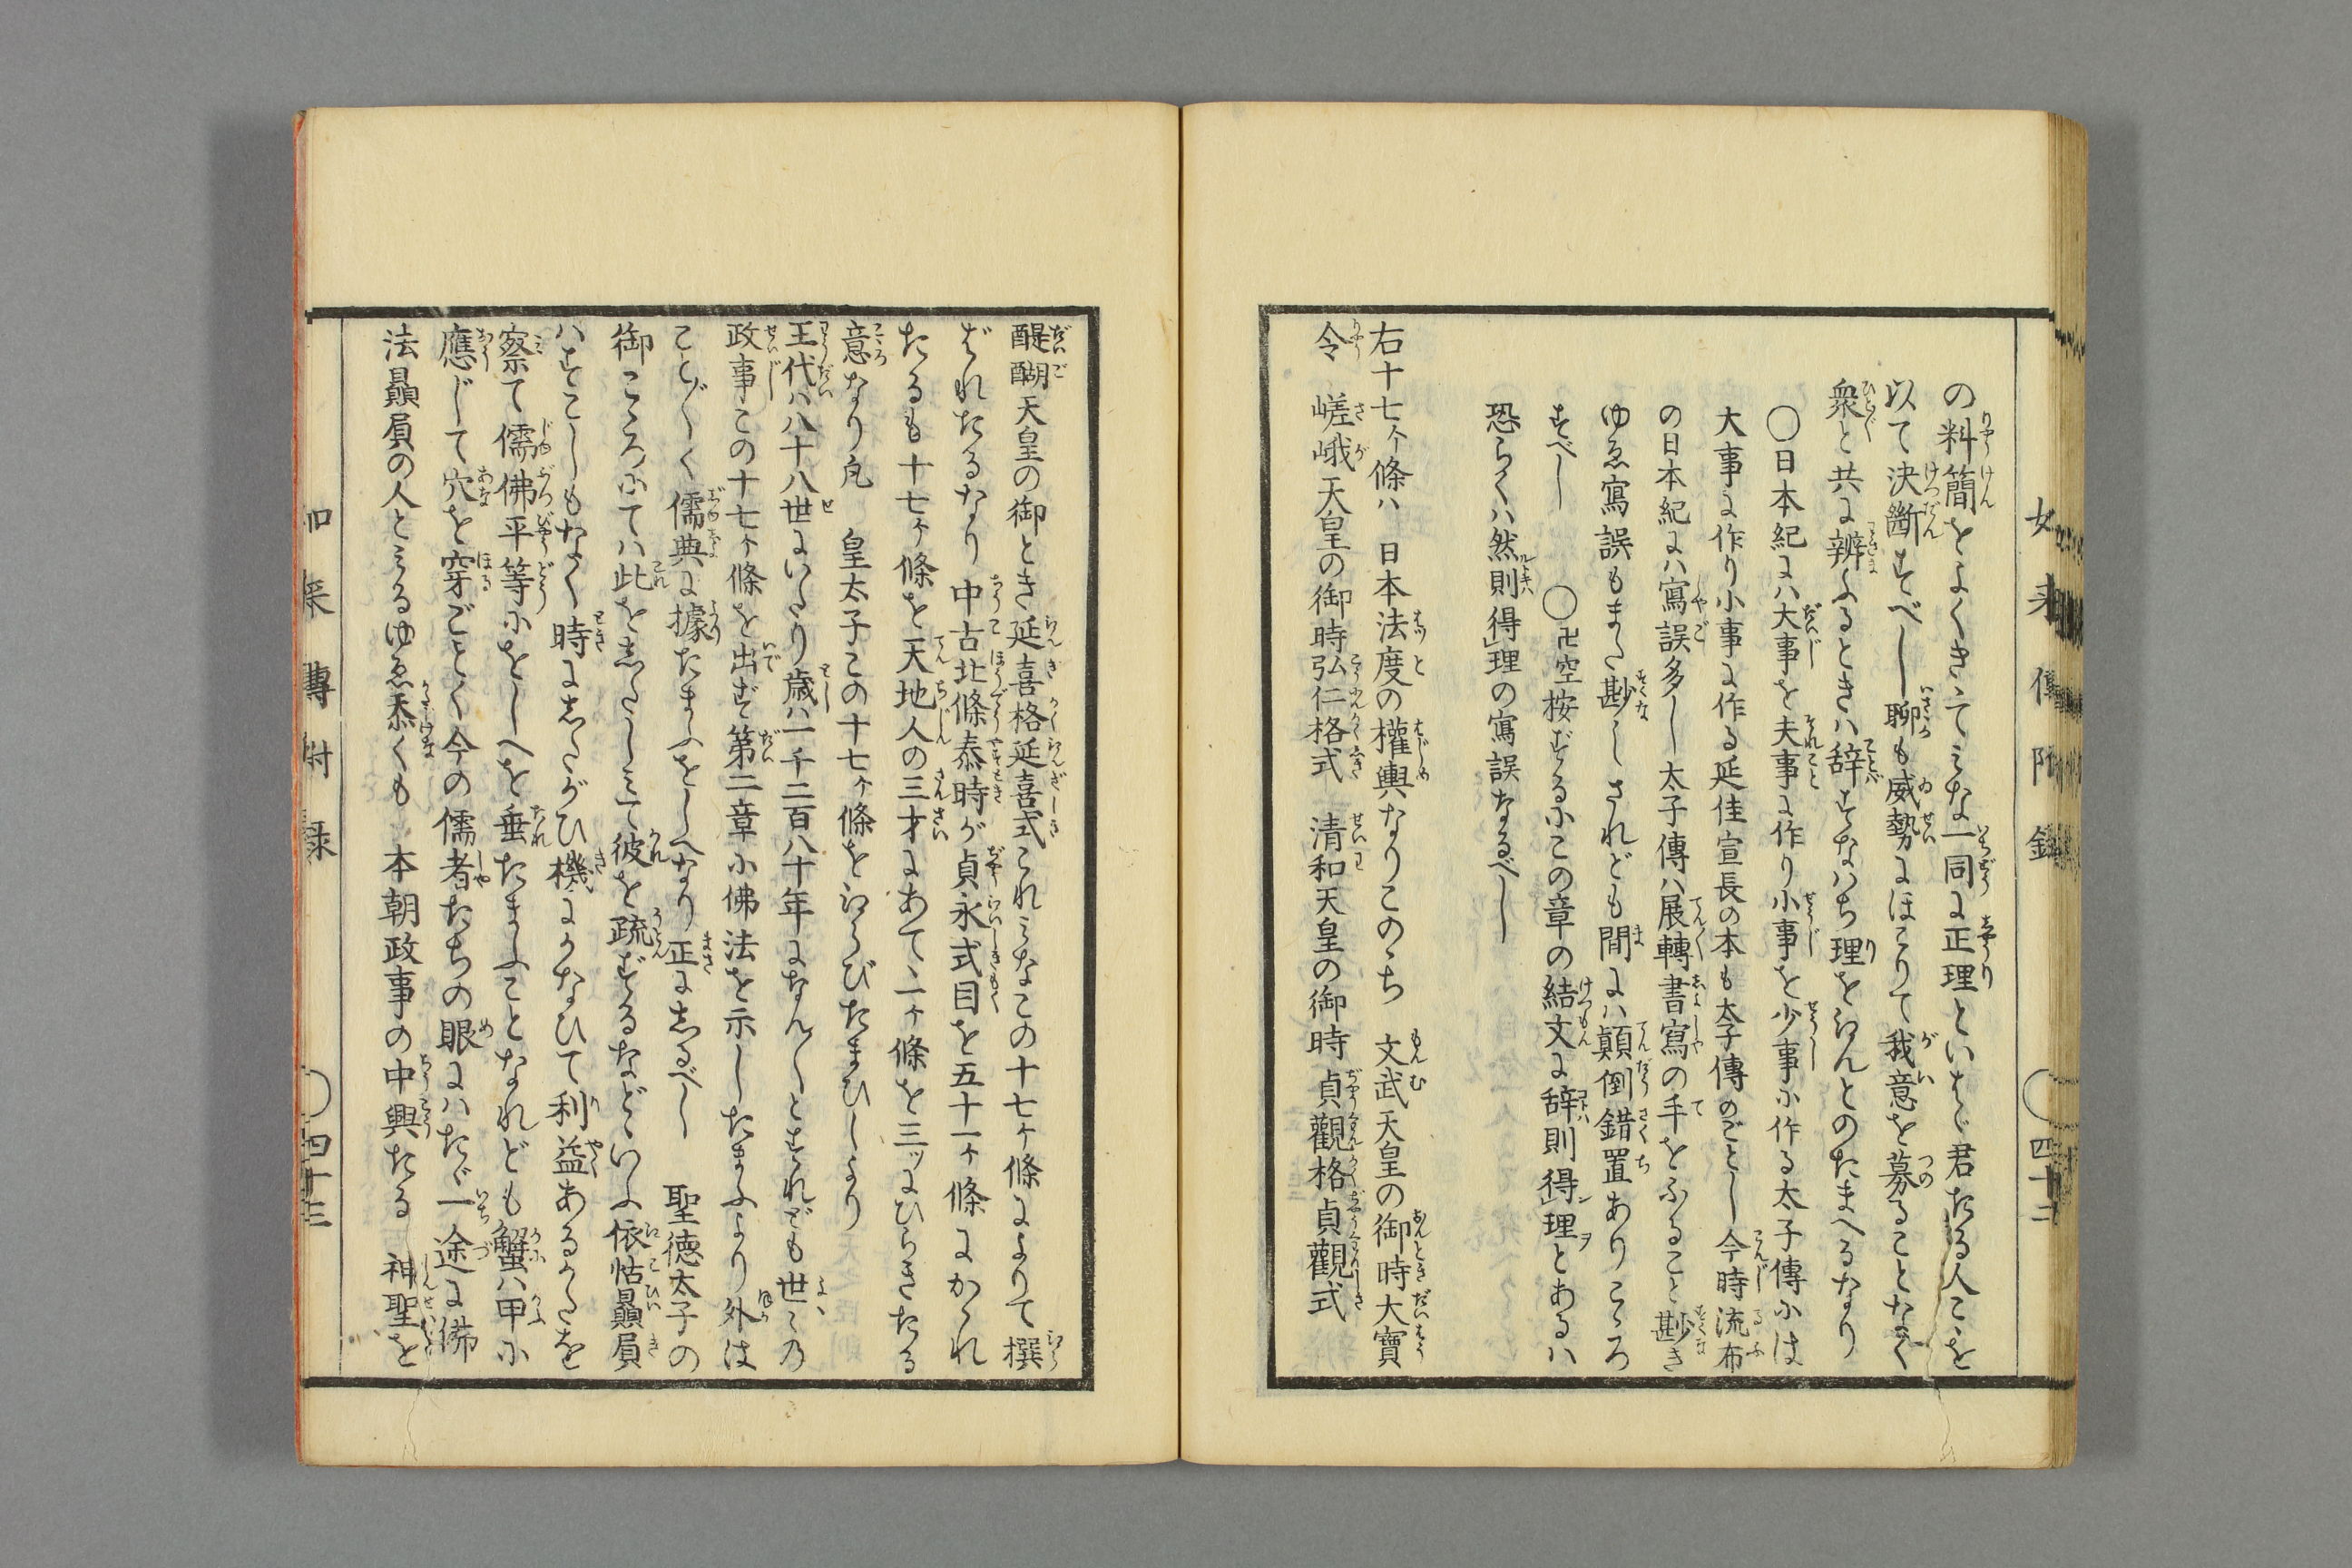 の料簡をよくきゝてみな一同に正理といはゞ君たる人これを
以て決断すべし聊も威勢にほこりて我意を募ることなく
衆と共に辨ふるときハ辞すなハち理を得んとのたまへるなり
〇日本紀にハ大事を夫事に作り小事を少事に作る太子傳には
大事に作り小事に作る延佳宣長の本も太子傳のごとし今時流布
の日本紀にハ寫誤多し太子傳ハ展轉書寫の手をふること尠き
ゆゑ寫誤もまた尠しされども間にハ顛倒錯置ありこゝろ
すべし　〇卍空按ずるにこの章の結文に辞則得理とあるハ
恐らくハ然則得理の寫誤なるべし
右十七ケ條ハ　日本法度の權輿なりこのゝち　文武天皇の御時大寶
令　嵯峨天皇の御時弘仁格式　清和天皇の御時貞觀格貞觀式
如来傳附録　〇四十三
醍醐天皇の御とき延喜格延喜式これみなこの十七ケ條によりて撰
ばれたるなり中古北條泰時が貞永式目を五十一ケ條にかゝれ
たるも十七ケ條を天地人の三才にあて一ケ條を三ッにひらきたる
意なり凡　皇太子この十七ケ條をえらびたまひしより
王代ハ八十八世にいたり歳ハ一千二百八十年になん〳〵とすれども世々の
政事この十七ケ條を出ず第二章に佛法を示したまふより外は
こと〴〵く儒典に據たまふをしへなり正にしるべし　聖徳太子の
御こゝろにてハ此をしたしみて彼を疏ずるなどゝいふ依怙贔屓
ハすこしもなく時にしたがひ機にかなひて利益あるかたを
察て儒佛平等にをしへを垂たまふことなれども蟹ハ甲に
應じて穴を穿ごとく今の儒者たちの眼にハたゞ一途に佛
法贔屓の人とみるゆゑ忝くも　本朝政事の中興たる　神聖を
如来傳附録　〇四十三